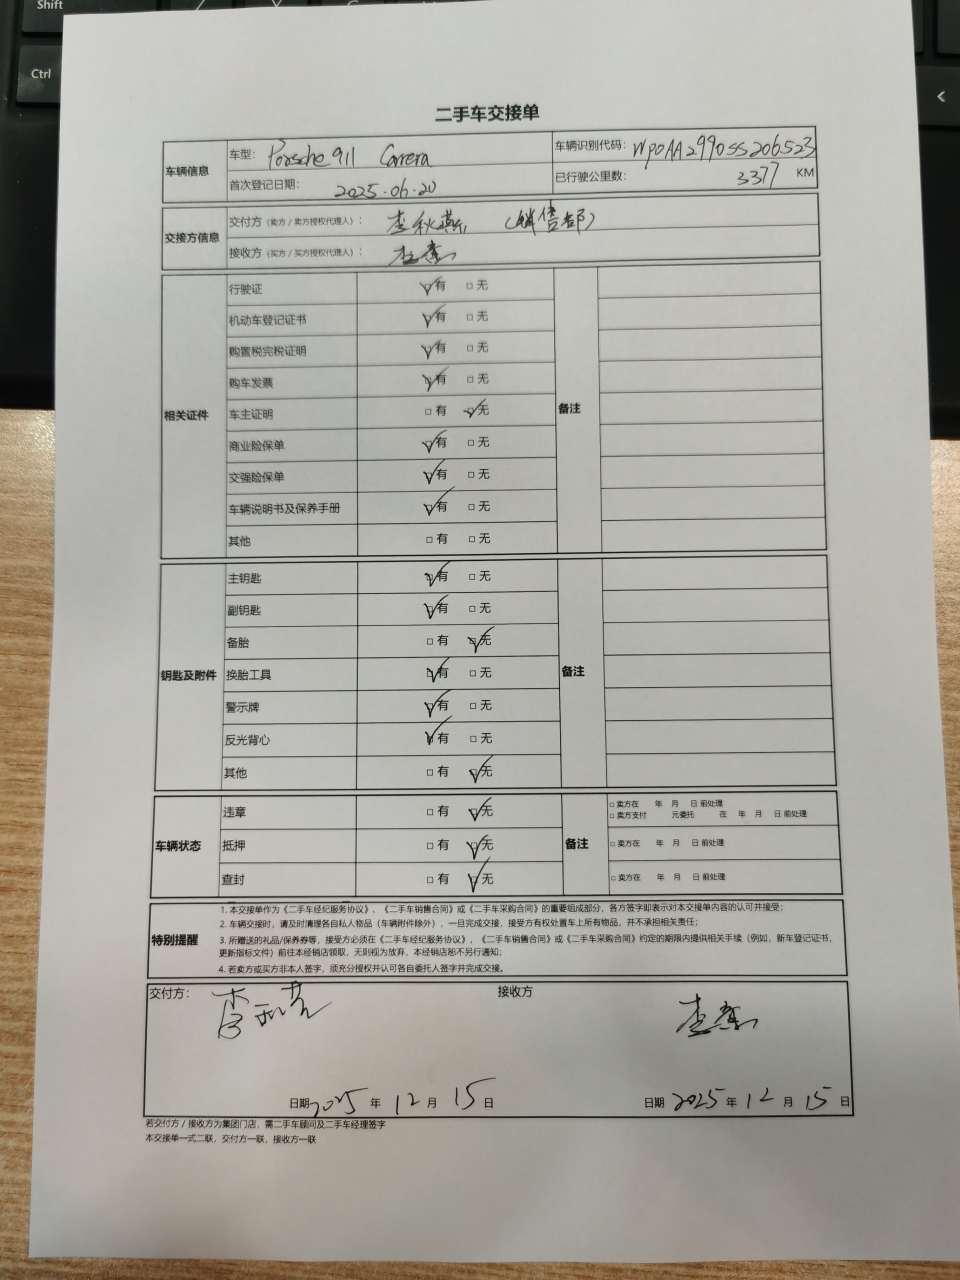 Shift
Ctrl
二手车交接单
车辆信息
车型： Porsche 911 Carrera
车辆识别代码： WP0AA2990SS206523
首次登记日期： 2025.06.20
已行驶公里数： 3377 KM
交接方信息
交付方（卖方 / 卖方授权代理人）： 李秋燕 （销售部）
接收方（买方 / 买方授权代理人）：
相关证件
行驶证 ☑有 □无
机动车登记证书 ☑有 □无
购置税完税证明 ☑有 □无
购车发票 ☑有 □无
车主证明 □有 ☑无
备注
商业险保单 ☑有 □无
交强险保单 ☑有 □无
车辆说明书及保养手册 ☑有 □无
其他 □有 □无
钥匙及附件
主钥匙 ☑有 □无
副钥匙 ☑有 □无
备胎 □有 ☑无
换胎工具 ☑有 □无
备注
警示牌 ☑有 □无
反光背心 ☑有 □无
其他 □有 ☑无
车辆状态
违章 □有 ☑无
备注
□ 卖方在 年 月 日 前处理
□ 卖方支付 元委托 在 年 月 日 前处理
抵押 □有 ☑无
□ 卖方在 年 月 日 前处理
查封 □有 ☑无
□ 卖方在 年 月 日 前处理
特别提醒
1. 本交接单作为《二手车经纪服务协议》、《二手车销售合同》或《二手车采购合同》的重要组成部分，各方签字即表示对本交接单内容的认可并接受；
2. 车辆交接时，请及时清理各自私人物品（车辆附件除外），一旦完成交接，接受方有权处置车上所有物品，并不承担相关责任；
3. 所赠送的礼品/保养券等，接受方必须在《二手车经纪服务协议》、《二手车销售合同》或《二手车采购合同》约定的期限内提供相关手续（例如，新车登记证书，
更新指标文件）前往本经销店领取，无则视为放弃，本经销店恕不另行通知；
4. 若卖方或买方非本人签字，须充分授权并认可各自委托人签字并完成交接。
交付方：
接收方
日期 2025 年 12 月 15 日
日期 2025 年 12 月 15 日
若交付方 / 接收方为集团门店，需二手车顾问及二手车经理签字
本交接单一式二联，交付方一联，接收方一联